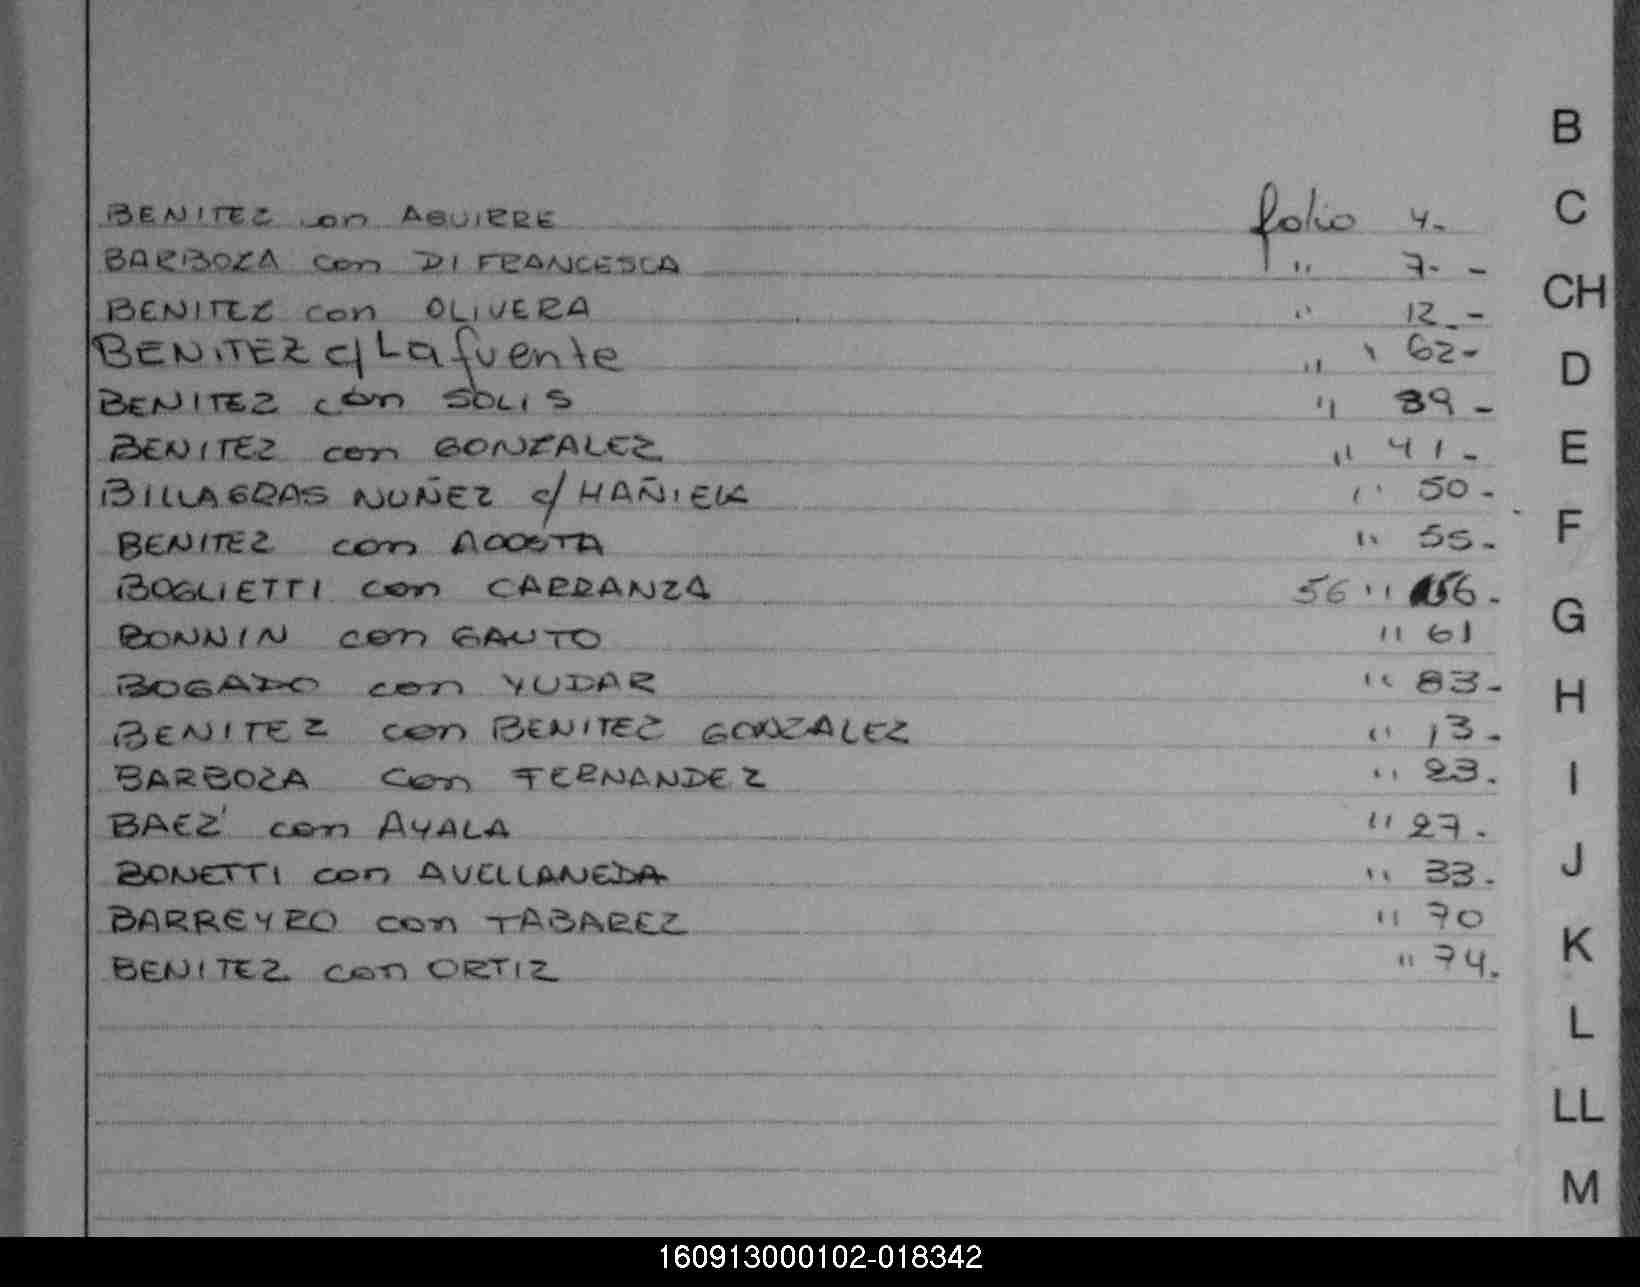 BENITEZ con AGUIRRE folio 4.
BARBOZA con DI FRANCESCA " 7. -
BENITEZ con OLIVERA " 12. -
BENITEZ c/ Lafuente " 62-
BENITEZ con SOLIS " 39 -
BENITEZ con GONZALEZ " 41 -
BILLAGRAS NUÑEZ c/ HAÑIEK " 50 -
BENITEZ con ACOSTA " 55.
BOGLIETTI con CARRANZA 56 " 56.
BONNIN con GAUTO " 61
BOGADO con YUDAR " 83-
BENITEZ con BENITEZ GONZALEZ " 13.
BARBOZA con FERNANDEZ " 23.
BAEZ con AYALA " 27.
BONETTI con AVELLANEDA " 33.
BARREYRO con TABAREZ " 70
BENITEZ con ORTIZ " 74.
B
C
CH
D
E
F
G
H
I
J
K
L
LL
M
160913000102-018342